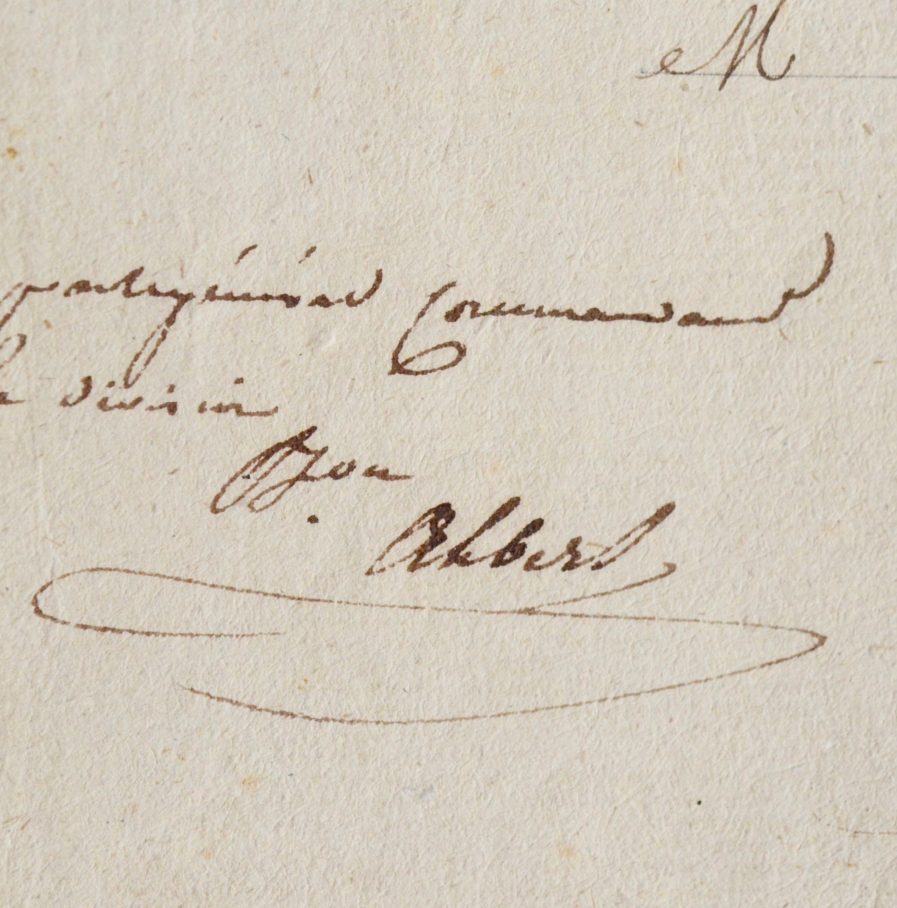 M
par le général Commandant
la division
Bon
Albert